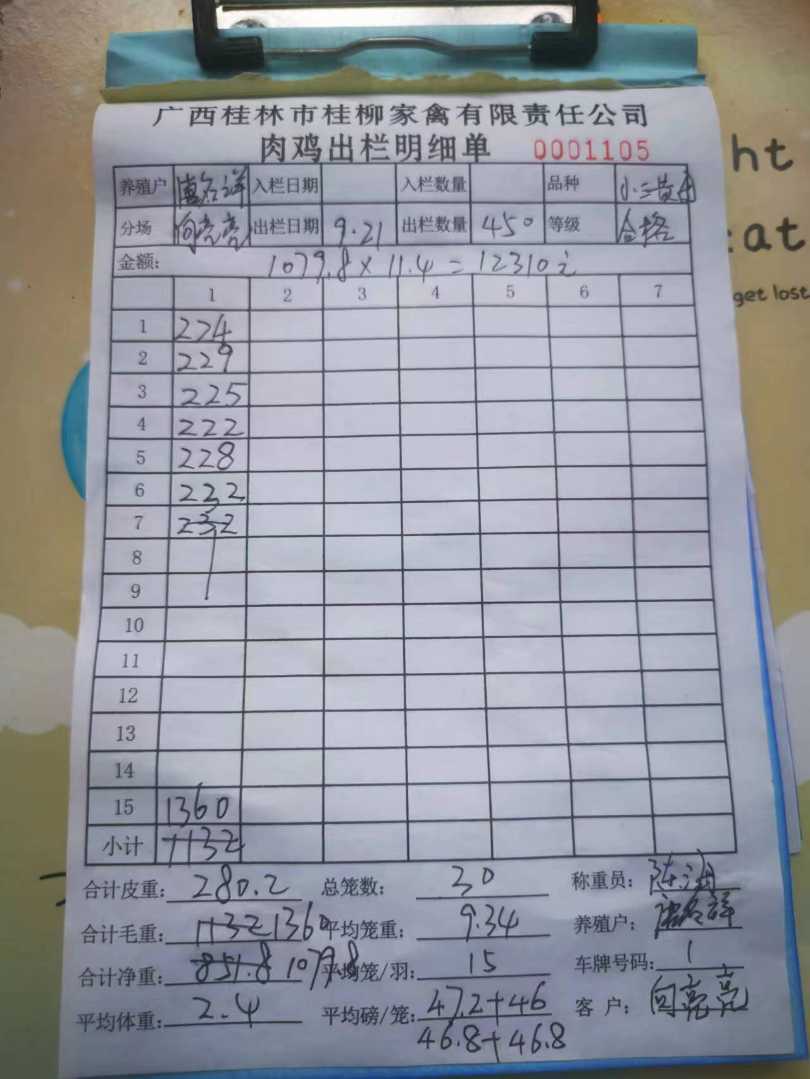 广西桂林市桂柳家禽有限责任公司
肉鸡出栏明细单 0001105
养殖户 入栏日期 入栏数量 品种
分场 向亮亮 出栏日期 9.21 出栏数量 450 等级 合格
金额: 1079.8 × 11.4 = 12310元
1 2 3 4 5 6 7
1 224
2 229
3 225
4 222
5 228
6 232
7 232
8
9
10
11
12
13
14
15 1360
小计 1132
合计皮重: 280.2 总笼数: 30 称重员:
合计毛重: 1132 1360 平均笼重: 9.34 养殖户:
合计净重: 851.8 1079.8 平均笼/羽: 15 车牌号码: 1
平均体重: 2.4 平均磅/笼: 47.2+46 客户: 向亮亮
46.8+46.8
ht
at
get lost